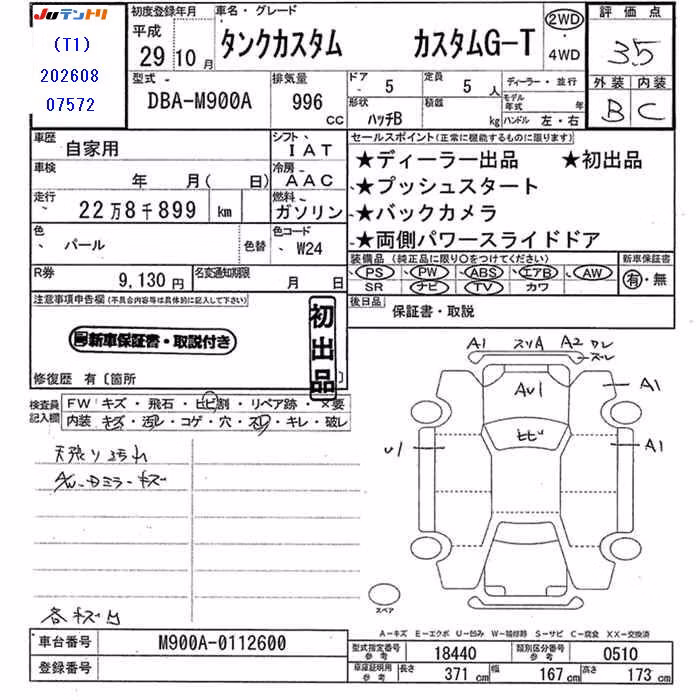 JUテントリ
(T1)
202608
07572
初度登録年月
平成
29 10 月
車名・グレード
タンクカスタム カスタムG-T
2WD
・
4WD
評価点
3.5
外装 内装
B C
型式
DBA-M900A
排気量
996 CC
ドア
5
形状
ハッチB
定員
5 人
積載
kg
ディーラー・並行
モデル年式 年
ハンドル 左・右
車歴
自家用
シフト
IAT
車検
年 月( 日)
冷房
AAC
走行
22万8千899 km
燃料
ガソリン
色
パール
色替
色コード
W24
R券
9,130円
名変通知期限
月 日
セールスポイント(正常に機能するものに限ります)
★ディーラー出品 ★初出品
★プッシュスタート
★バックカメラ
★両側パワースライドドア
装備品(純正品に限り○をつけてください)
PS PW ABS エアB AW
SR ナビ TV カワ
新車保証書
有・無
後日品
保証書・取説
注意事項申告欄(不具合内容等は具体的に記入して下さい)
新車保証書・取説付き
初出品
修復歴 有〔箇所 〕
検査員記入欄
FW キズ・飛石・ヒビ割・リペア跡・×要
内装 キズ・汚レ・コゲ・穴・スレ・キレ・破レ
天張り汚れ
AW・Dミラーキズ
各キズ凹
A1 スリA A2 ワレ
ズレ
AU1
A1
ヒビ
U1
A1
スペア
A-キズ E-エクボ U-凹み W-補修跡 S-サビ C-腐食 XX-交換済
車台番号
M900A-0112600
登録番号
型式指定番号 参考
18440
類別区分番号 参考
0510
車庫証明用 参考
長さ 371 cm 幅 167 cm 高さ 173 cm